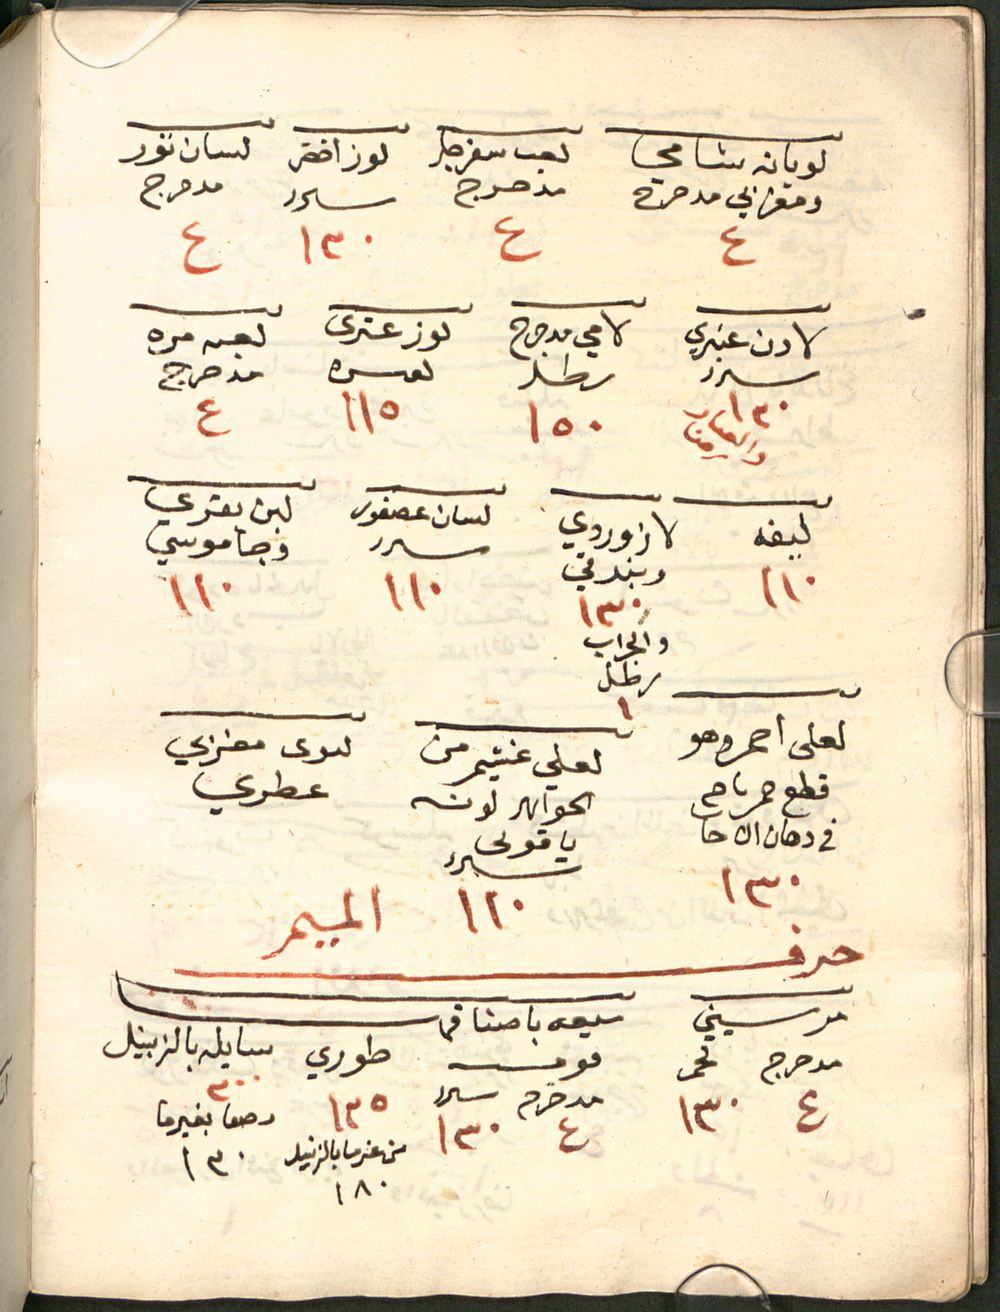 لوبانه شامي
ومغربي مدحرج
٤
لعب سفرجل
مدحرج
٤
لوز اخضر
سرر
١٣٠
لسان ثور
مدحرج
٤
لادن عنبري
سرر
١٣٠
لامي مدحرج
رطل
١٥٠
لوز عنزي
١١٥
لعبه مره
مدحرج
٤
ليفه
١١٠
لازوردي
وبندقي
١٣٠
والجراب
رطل
١
لسان عصفور
سرر
١١٠
لبن بقري
وجاموسي
١١٠
لعلي احمر وهو
قطع حمر ياجي
في دهان
١٣٠
لعلي غشيم من
الجواهر لونه
ياقوتي
سرر
١١٠
مغربي
عطري
حرف الميم
مرسيني
مدحرج
٤
١٣٠
ميعه باصناف
مدحرج
٤
سرر
١٣٠
طوري
١٣٥
بالزنبيل
١٨٠
سايله بالزنبيل
٢٠٠
بغيرها
١٣٠